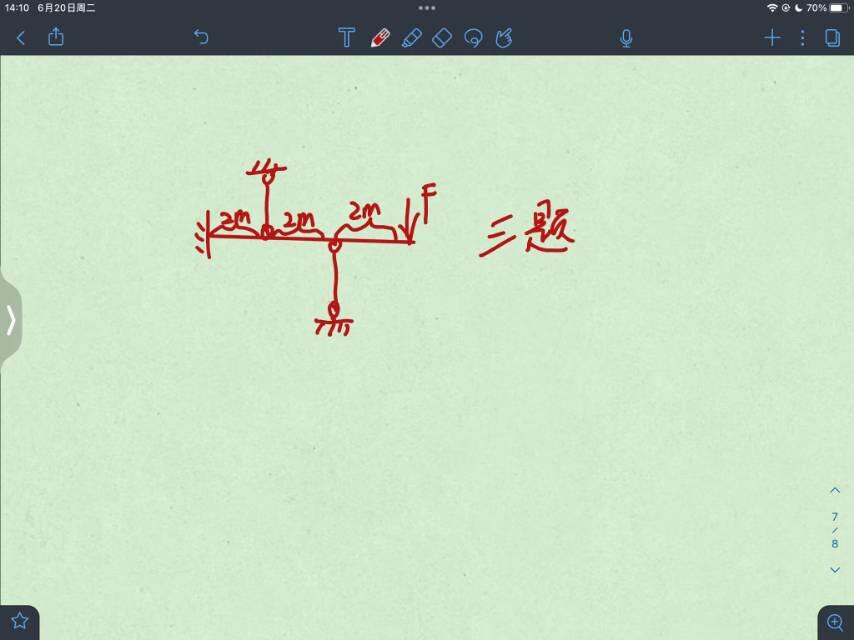 14:10 6月20日周二
70%
2m 2m 2m F
三题
7
/
8